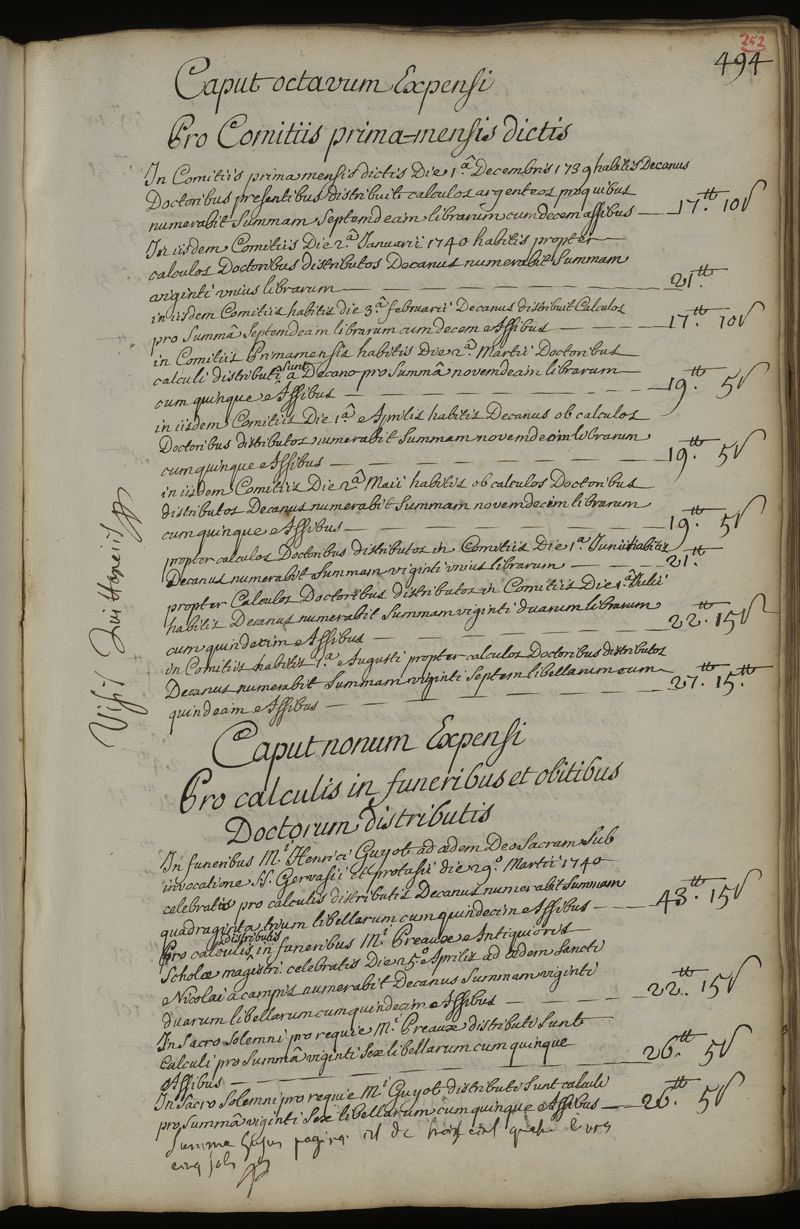 252
494
Caput octavum Expensi
Pro Comitiis prima-mensis dictis
In Comitiis prima mensis dictis Die 1.â Decembris 1739 habitis Decanus
Doctoribus presentibus distribuit calculos argenteos pro quibus
numerabit Summam Septemdecim librarum cum decem assibus — 17.tt 10s
In iisdem Comitiis Die 2.â Januarii 1740 habitis propter
calculos Doctoribus distributos Decanus numerabit Summam
viginti unius librarum — 21.tt
in iisdem Comitiis habitis die 3.â februarii Decanus distribuit Calculos
pro Summâ Septemdecim librarum cum decem Assibus — 17.tt 10s
in Comitiis Primamensis habitis Die 2.â Martii Doctoribus
calculi distributi sunt a Decano pro Summâ novemdecim librarum
cum quinque Assibus — 19.tt 5s
in iisdem Comitiis Die 1.â Aprilis habitis Decanus ob calculos
Doctoribus distributos numerabit Summam novemdecim librarum
cum quinque Assibus — 19.tt 5s
in iisdem Comitiis Die 2.â Maii habitis ob calculos Doctoribus
distributos Decanus numerabit Summam novemdecim librarum
cum quinque Assibus — 19.tt 5s
propter calculos Doctoribus distributos in Comitiis Die 1.â Junii habitis
Decanus numerabit Summam viginti unius librarum — 21.tt
propter Calculos Doctoribus distributos in Comitiis Die 1.â Julii
habitis Decanus numerabit Summam viginti duarum librarum
cum quindecim Assibus — 22.tt 15s
in Comitiis habitis 1.â Augusti propter calculos Doctoribus distributos
Decanus numerabit Summam viginti Septem libellarum cum
quindecim Assibus — 27.tt 15.tt
Visit
Caput nonum Expensi
Pro calculis in funeribus et obitibus
Doctorum distributis
In funeribus M.ri Henrici Guyot ad ædem Deo Sacram Sub
invocatione SS. Gervasii et protasii die 29.o Martii 1740
celebratis pro calculis distributis Decanus numerabit Summam
quadraginta trium libellarum cum quindecim Assibus — 43.tt 15s
Pro calculis distributis in funeribus M.ri Preaux Antiquioris
Scholæ magistri celebratis Die 25.o Aprilis ad ædem Sancti
Nicolai a campis numerabit Decanus Summam viginti
duarum libellarum cum quindecim Assibus — 22.tt 15s
In Sacro Solemni pro requie M.ri Preaux distributi Sunt
Calculi pro Summâ viginti Sex libellarum cum quinque
Assibus — 26.tt 5s
In Sacro Solemni pro requie M.ri Guyot distributi Sunt calculi
pro Summâ viginti Sex libellarum cum quinque Assibus — 26.tt 5s
Summa hujus paginæ est de trois cent quatre livres
cinq sols